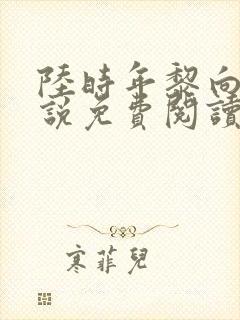 陸時年黎向
說免費閱讀
寒菲兒